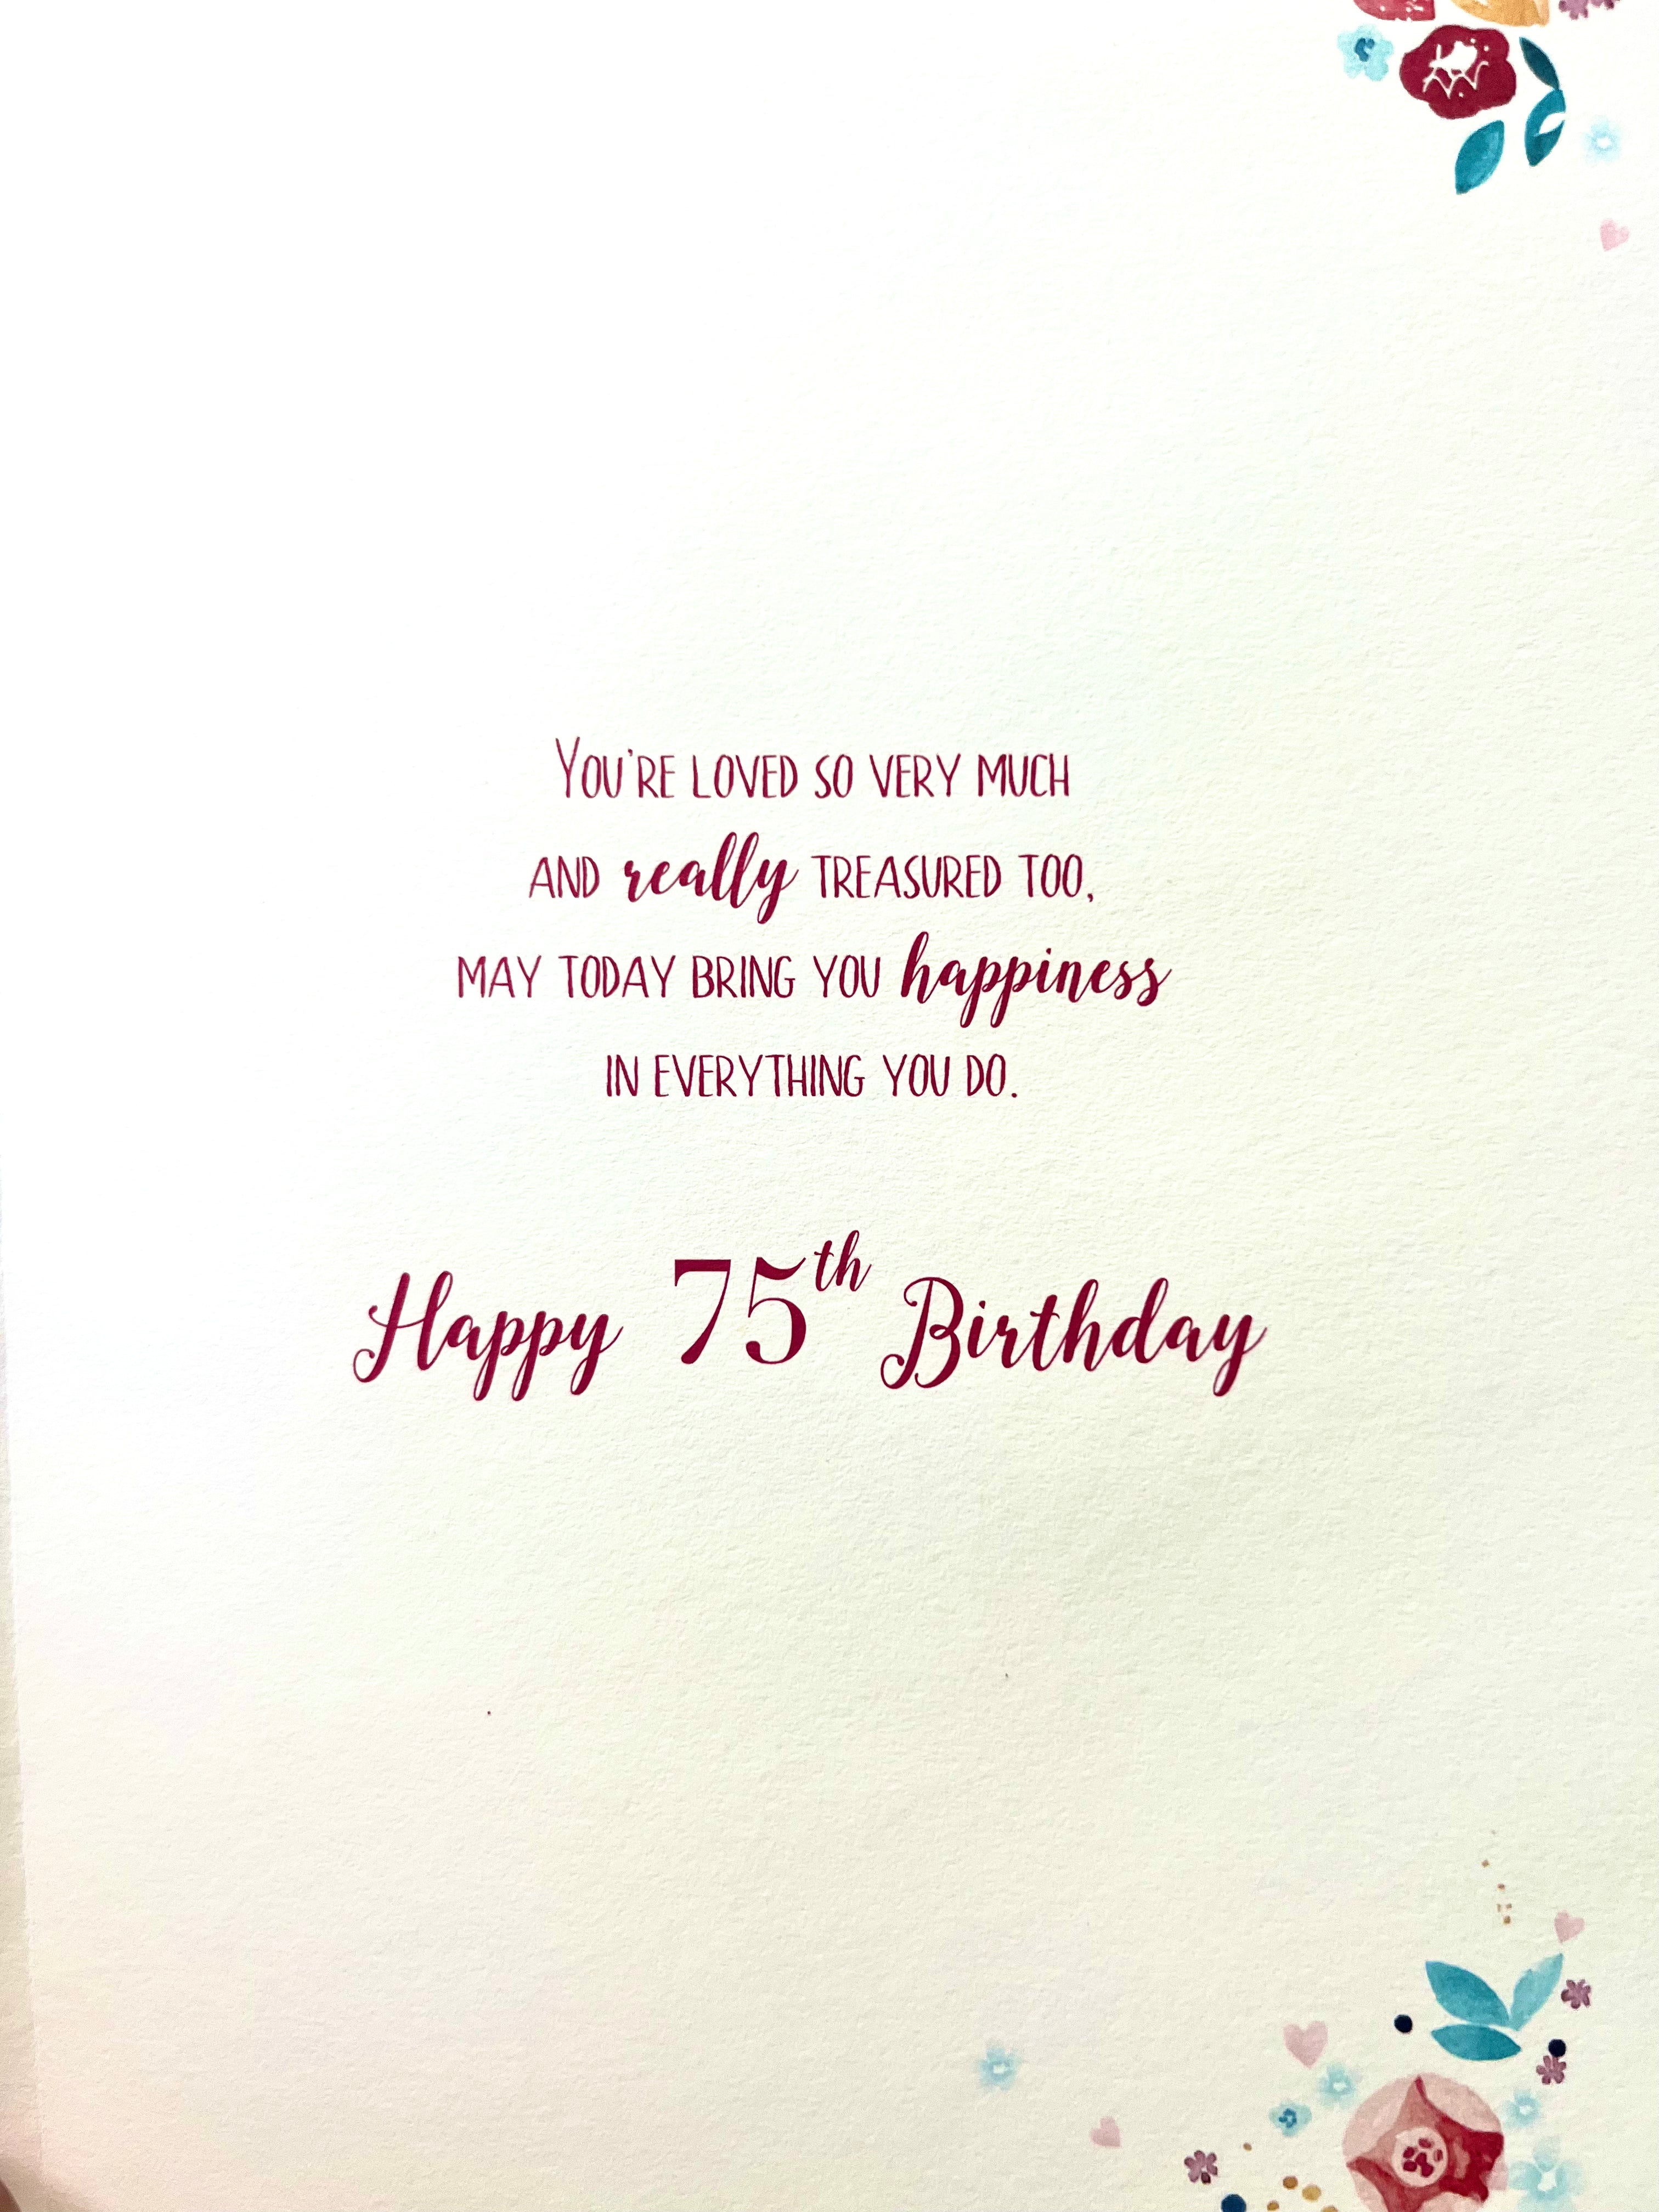 You're loved so very much
and really treasured too,
may today bring you happiness
in everything you do.
Happy 75th Birthday